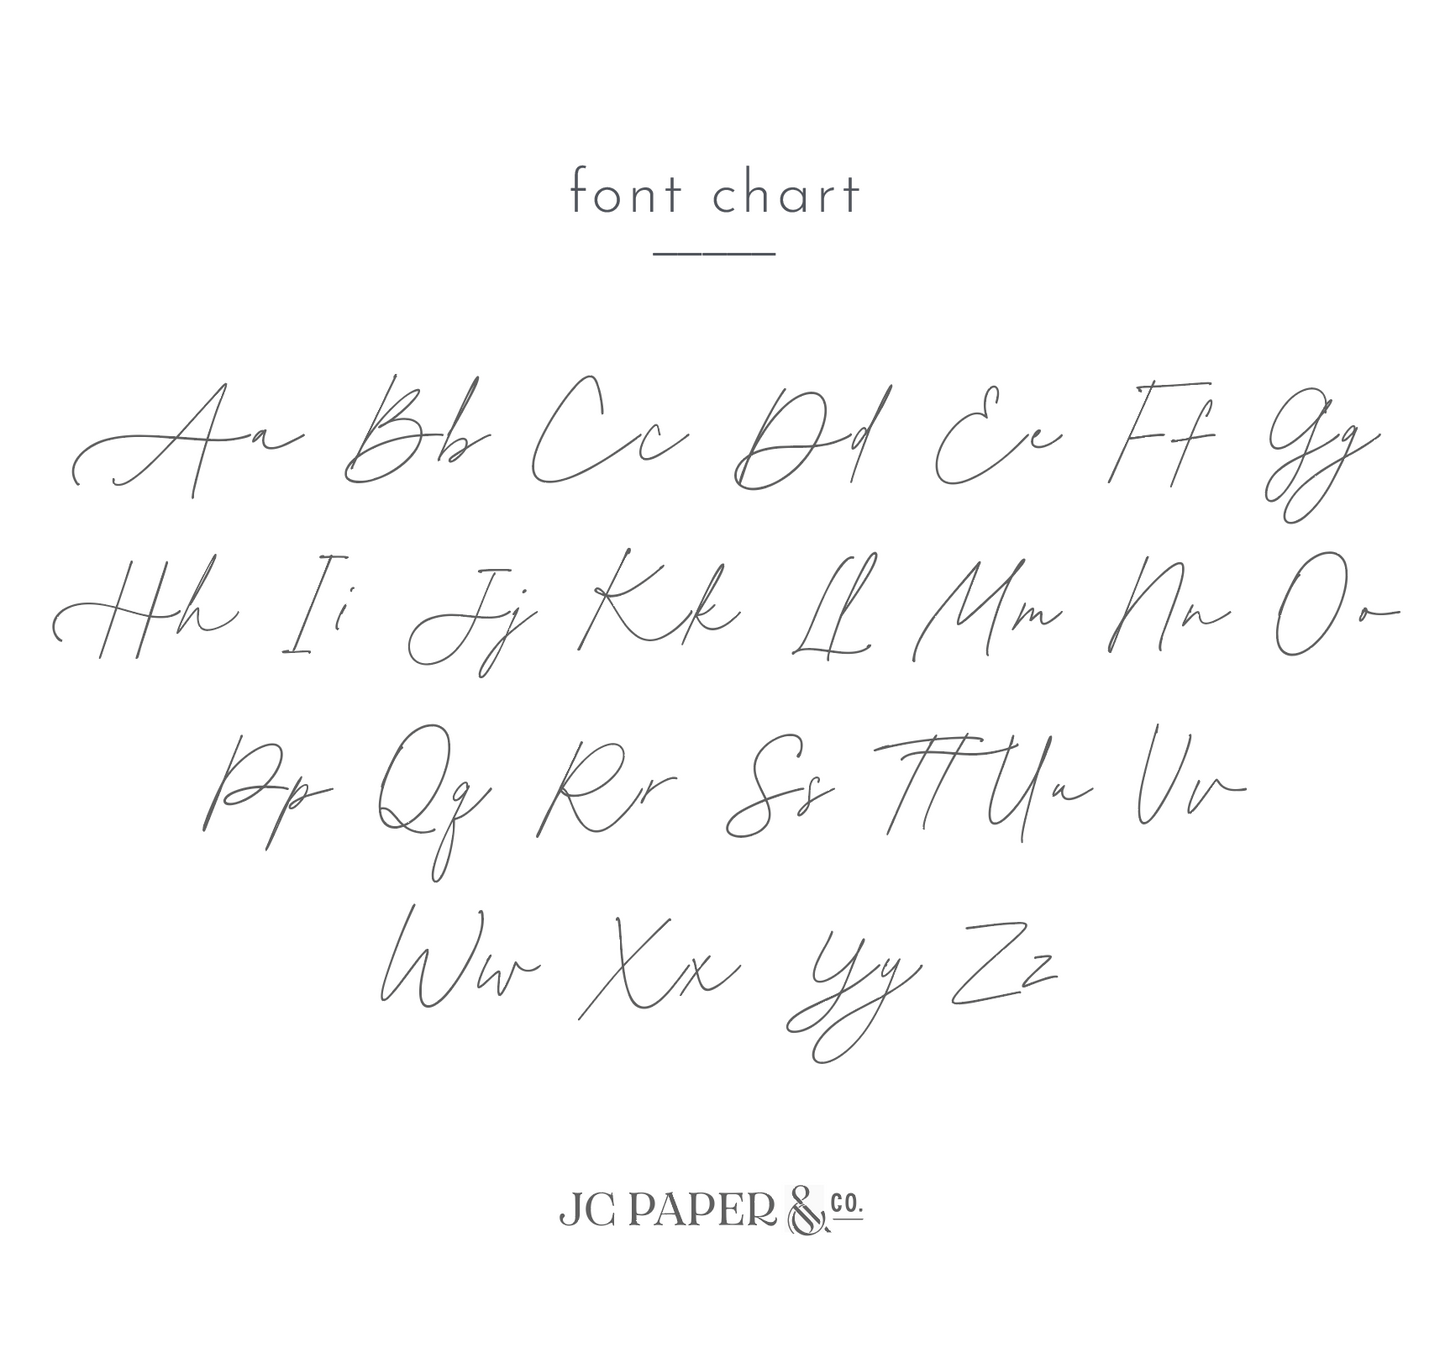 font chart
Aa Bb Cc Dd Ee Ff Gg
Hh Ii Jj Kk Ll Mm Nn Oo
Pp Qq Rr Ss Tt Uu Vv
Ww Xx Yy Zz
JC PAPER & CO.